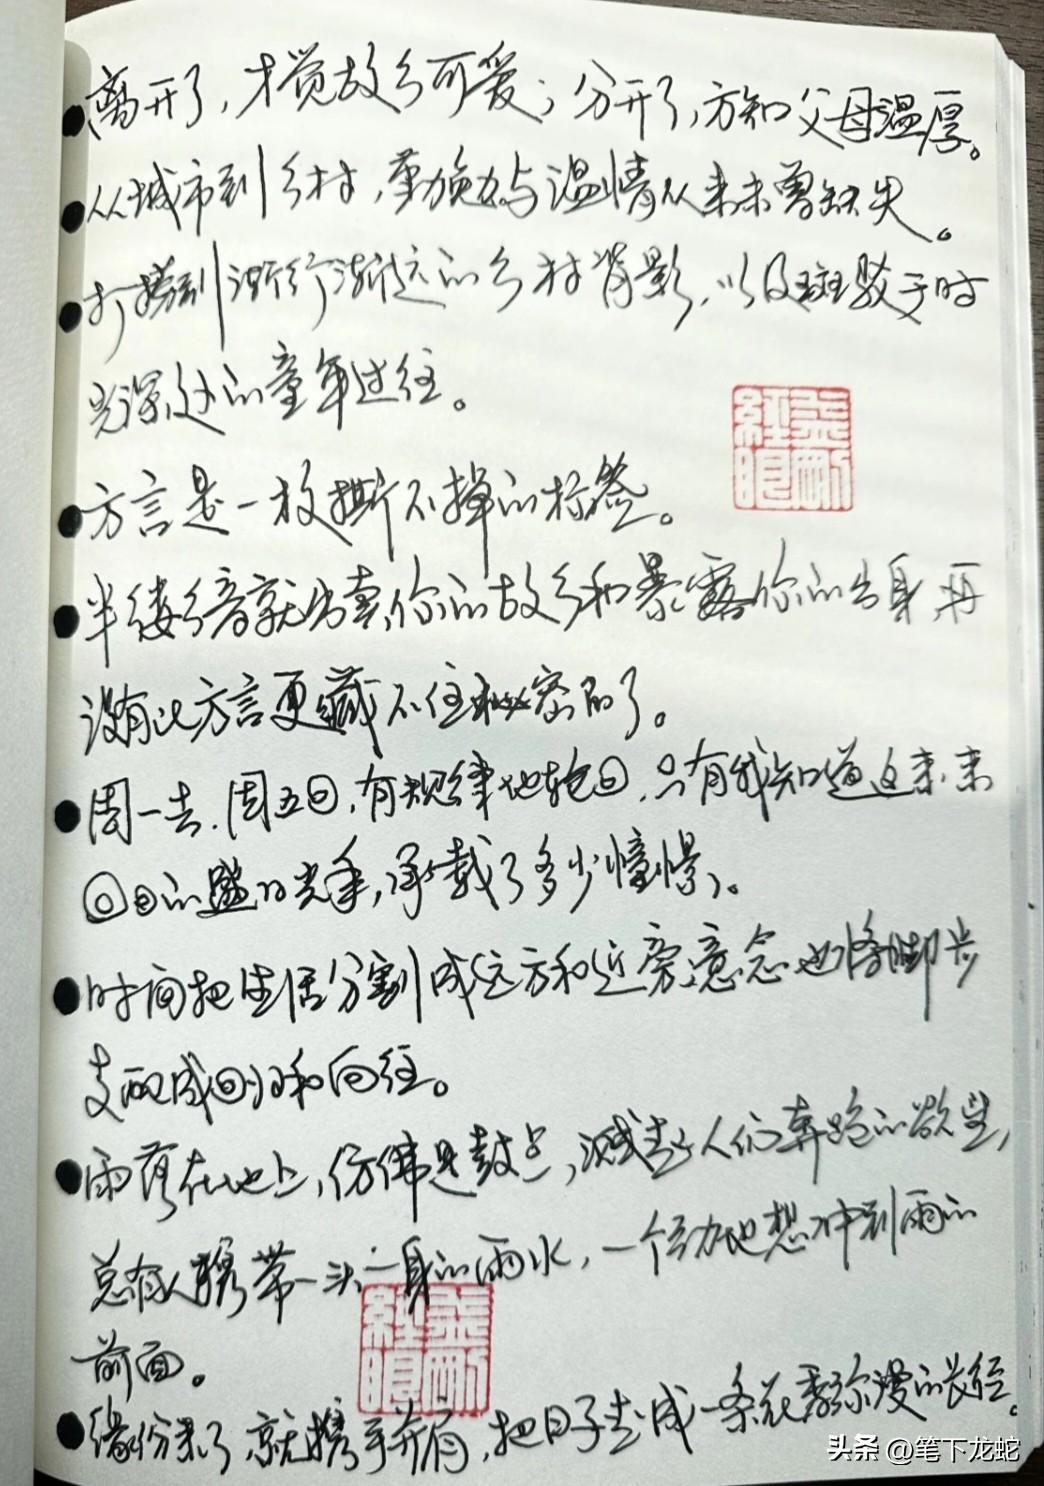 离开了，才觉故乡可爱；分开了，方知父母温厚。
从城市到乡村，勤勉与温情从来未曾缺失。
打捞到渐行渐远的乡村背影，以及斑驳于时
光深处的童年过往。
方言是一枚撕不掉的标签。
半缕乡音就出卖你的故乡和暴露你的出身，再
没有比方言更藏不住秘密的了。
周一去，周五回，有规律地轮回，只有我知道这来来
回回的光年，承载了多少憧憬。
时间把生活分割成远方和近旁，意念也将脚步
支配成回归和向往。
雨落在地上，仿佛是鼓点，人们奔跑的欲望，
总有人携带一头一身的雨水，一个劲地想冲到雨的
前面。
缘份来了，就携手并肩，把日子走成一条花香弥漫的长径。
经眼
头条 @笔下龙蛇